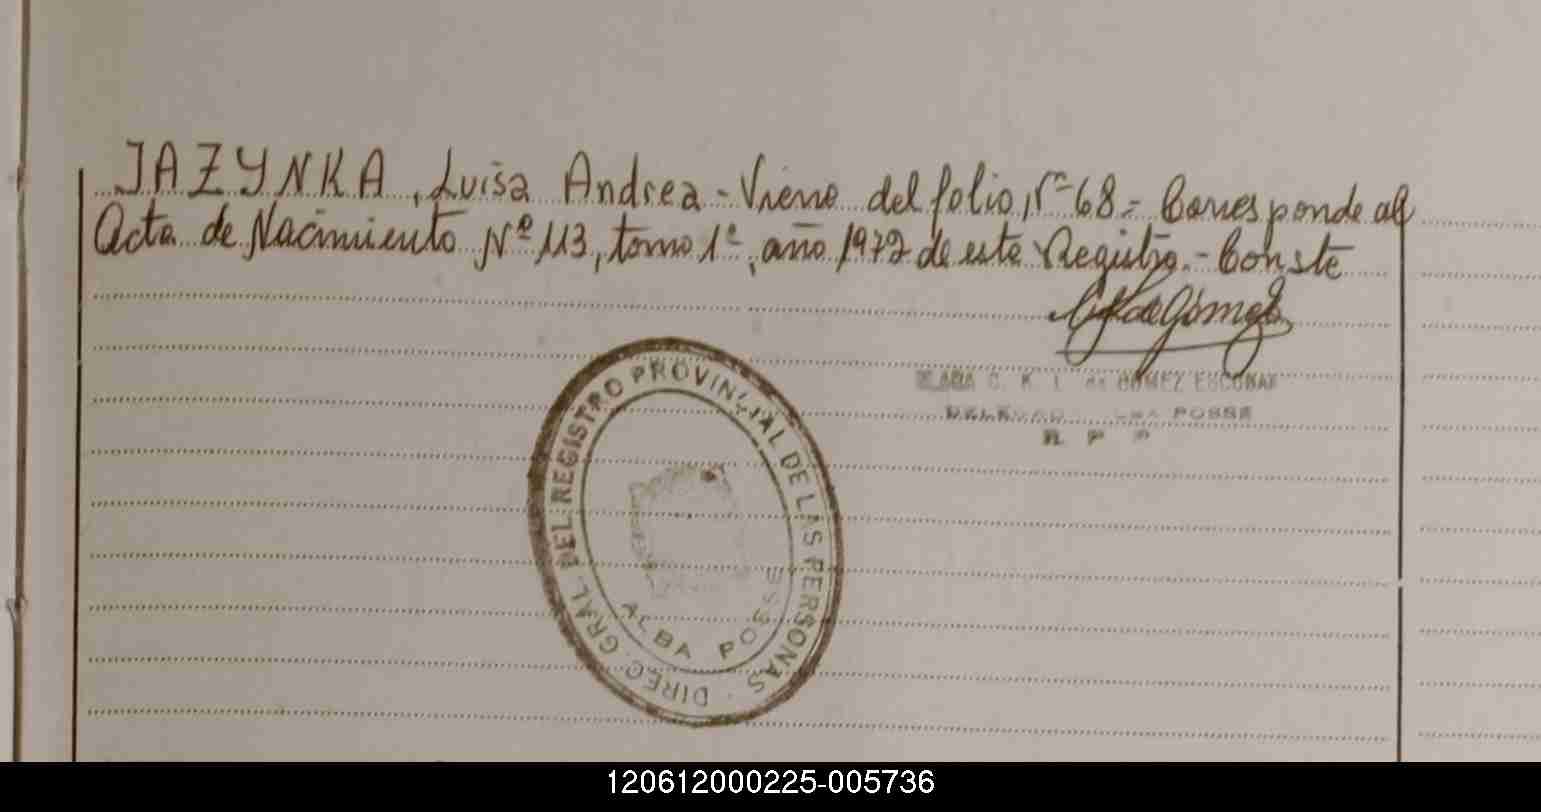 JAZYNKA, Luisa Andrea - Viene del folio Nº 68 - Corresponde al
Acta de Nacimiento Nº 113, tomo 1º, año 1972 de este Registro. - Conste
de Gómez
C. K. I. de GOMEZ ESCOBAR
POSSE
R P P
DIREC. GRAL. DEL REGISTRO PROVINCIAL DE LAS PERSONAS
ALBA POSSE
120612000225-005736